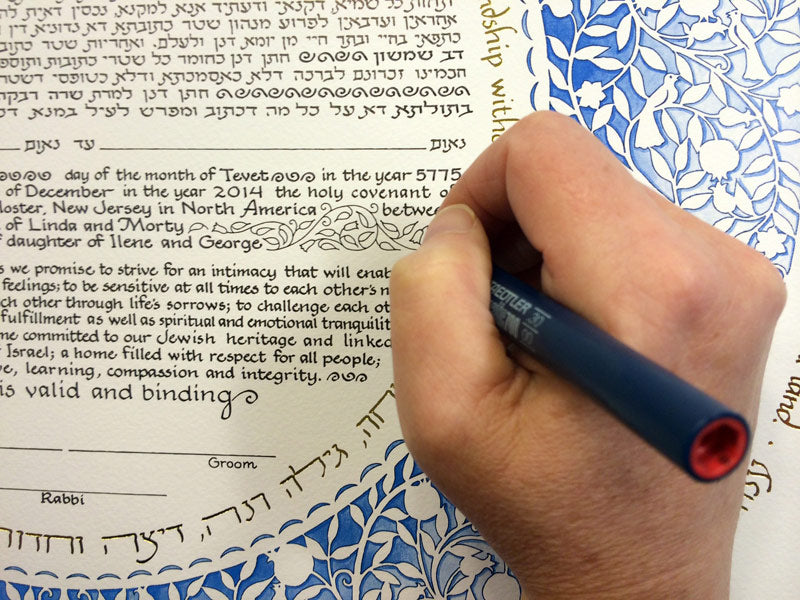 תחות כל שמיא, דקנאי ודעתיד אנא למקנא, נכסין דאית
אחראין וערבאין לפרוע מנהון שטר כתובתא דא נדוניא דין
כתפאי בחיי ובתר חיי מן יומא דנן ולעלם. ואחריות שטר
דב שמשון חתן דנן כחומר כל שטרי כתובות
חכמינו זכרונם לברכה דלא כאסמכתא ודלא כטופסי
חתן דנן למרת שרה
בתולתא דא על כל מה דכתוב ומפרש לעיל במנא
נאום עד נאום
day of the month of Tevet in the year 5775
of December in the year 2014 the holy covenant of
New Jersey in North America
of Linda and Morty
daughter of Ilene and George
we promise to strive for an intimacy that will
feelings; to be sensitive at all times to each other's
other through life's sorrows; to challenge each
fulfillment as well as spiritual and emotional
committed to our Jewish heritage and linked
Israel; a home filled with respect for all people;
learning, compassion and integrity.
is valid and binding
Groom
Rabbi
גילה רנה, דיצה
STAEDTLER 30
land.